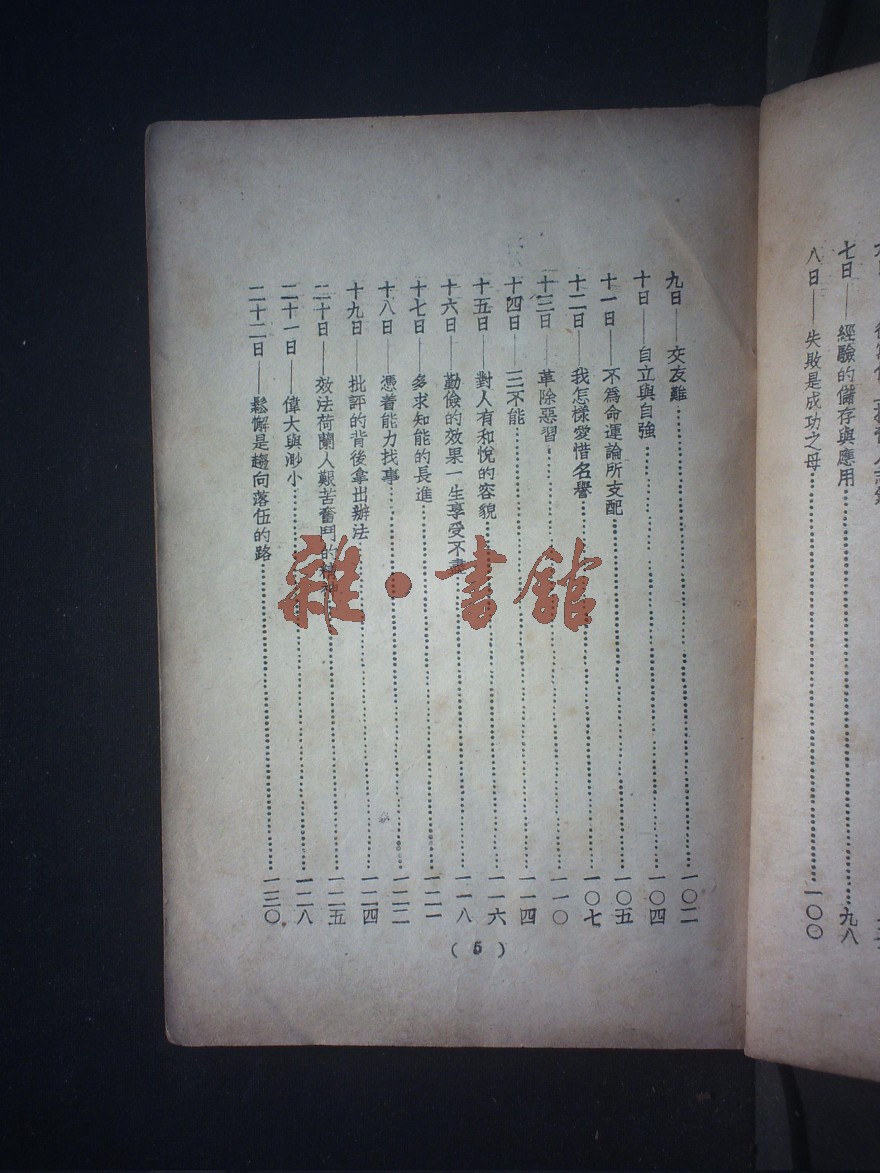 七日——經驗的儲存與應用……九八
八日——失敗是成功之母……一〇〇
九日——交友難……一〇二
十日——自立與自強……一〇四
十一日——不為命運論所支配……一〇五
十二日——我怎樣愛惜名譽……一〇七
十三日——革除惡習……一一〇
十四日——三不能……一一四
十五日——對人有和悅的容貌……一一六
十六日——勤儉的效果一生享受不盡……一一八
十七日——多求知能的長進……一二一
十八日——憑着能力找事……一二二
十九日——批評的背後拿出辦法……一二四
二十日——效法荷蘭人艱苦奮鬥的精神……一二五
二十一日——偉大與渺小……一二八
二十二日——鬆懈是趨向落伍的路……一三〇
(5)
雜·書館